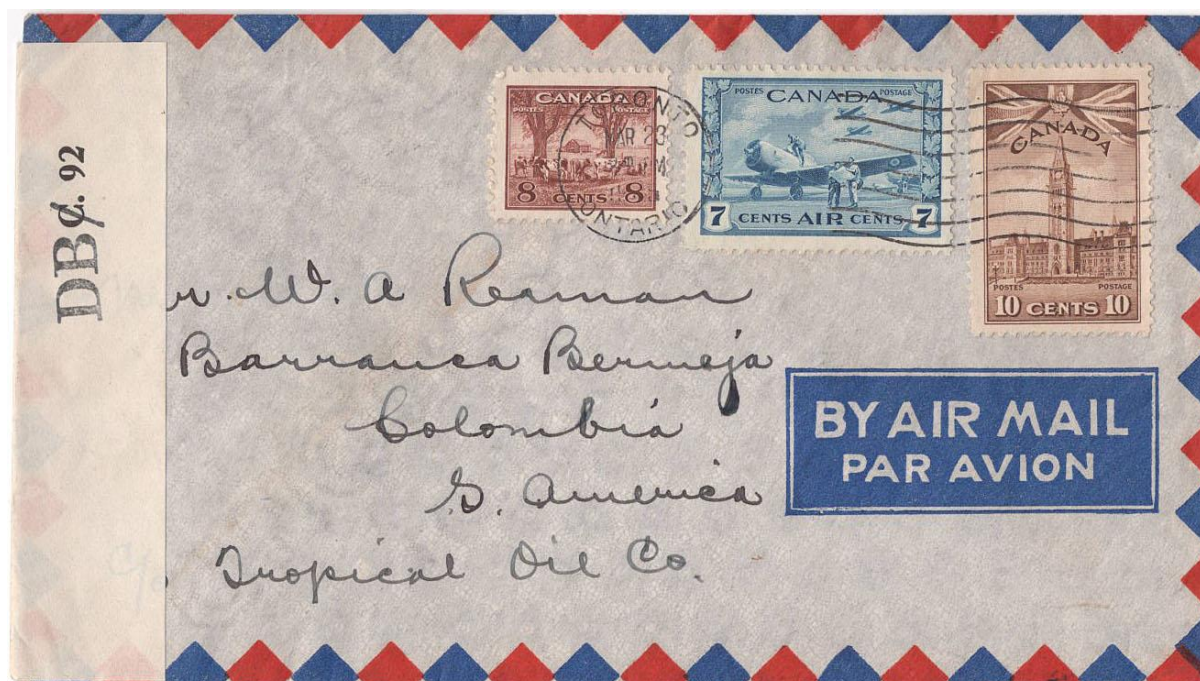 DB/C. 92
CANADA
POSTES POSTAGE
8 CENTS 8
TORONTO
MAR 23
ONTARIO
POSTES CANADA POSTAGE
7 CENTS AIR CENTS 7
CANADA
POSTES POSTAGE
10 CENTS 10
r. W. A Reaman
Barranca Bermeja
Colombia
S. America
BY AIR MAIL
PAR AVION
c/o Tropical Oil Co.